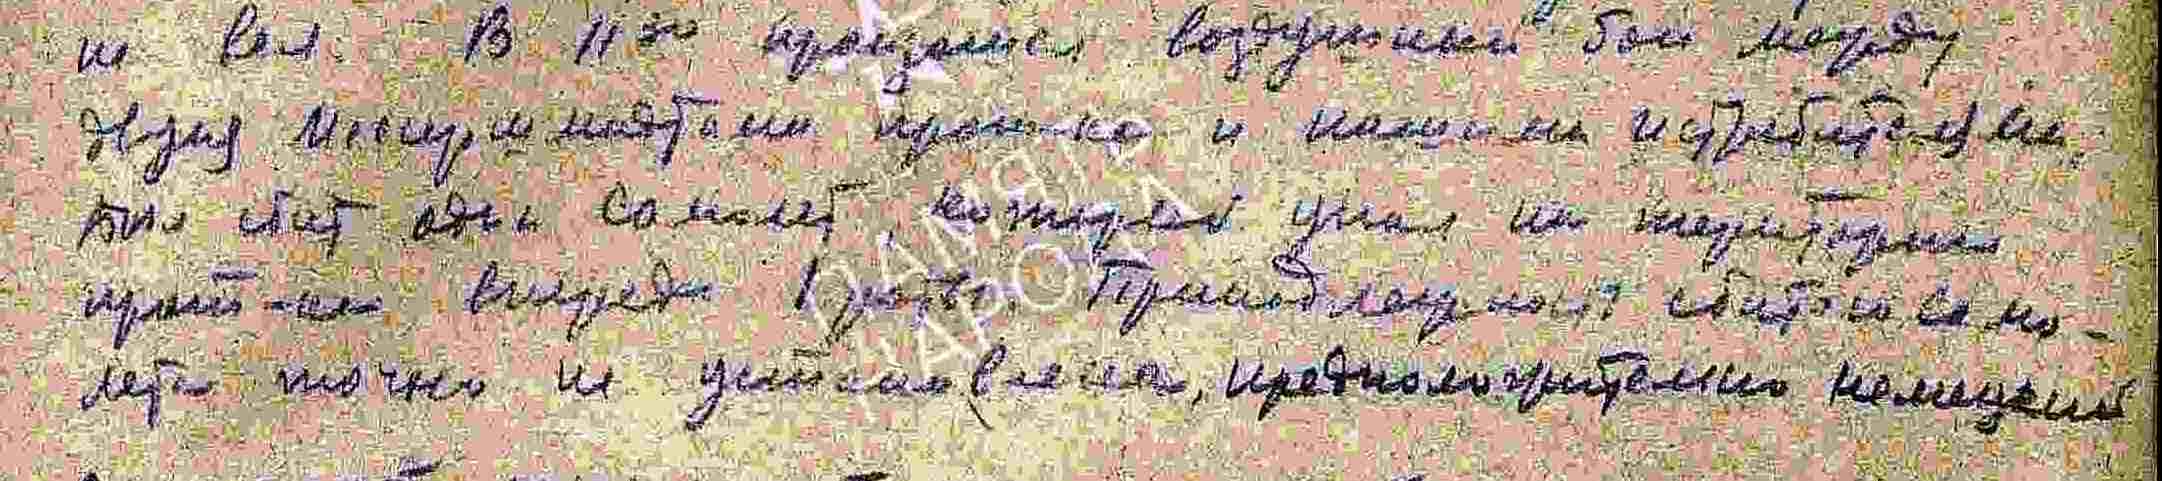 не вел. В 11³⁰ произошел воздушный бой между
двумя Мессершмидтами пр-ка и нашими истребителями,
был сбит один самолет, который упал на территории
пр-ка впереди Принадлежность сбитого само-
лета точно не установлена, предположительно немецкий
ПАМЯТЬ
НАРОДА